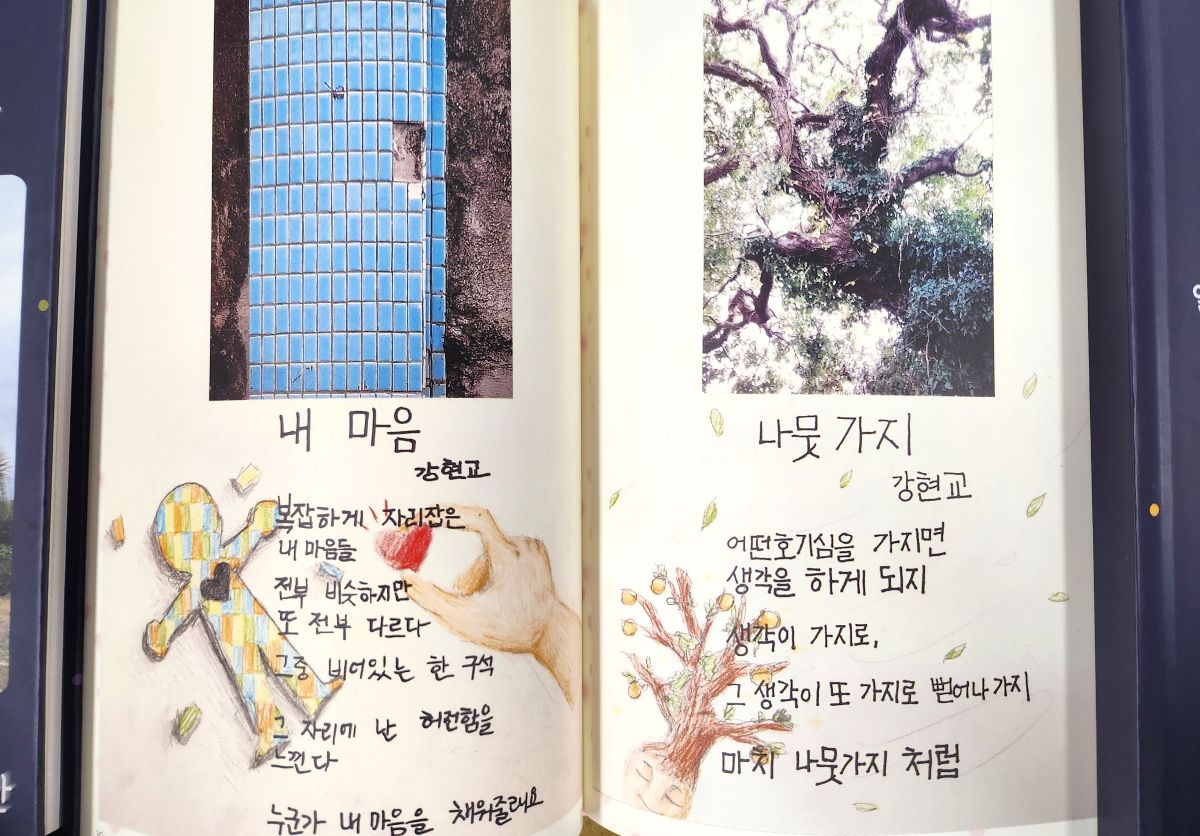 내 마음
강현교
복잡하게 자리잡은
내 마음들
전부 비슷하지만
또 전부 다르다
그중 비어있는 한 구석
그 자리에 난 허전함을
느낀다
누군가 내 마음을 채워줄래요
나뭇가지
강현교
어떤호기심을 가지면
생각을 하게 되지
생각이 가지로,
그 생각이 또 가지로 뻗어나가지
마치 나뭇가지 처럼